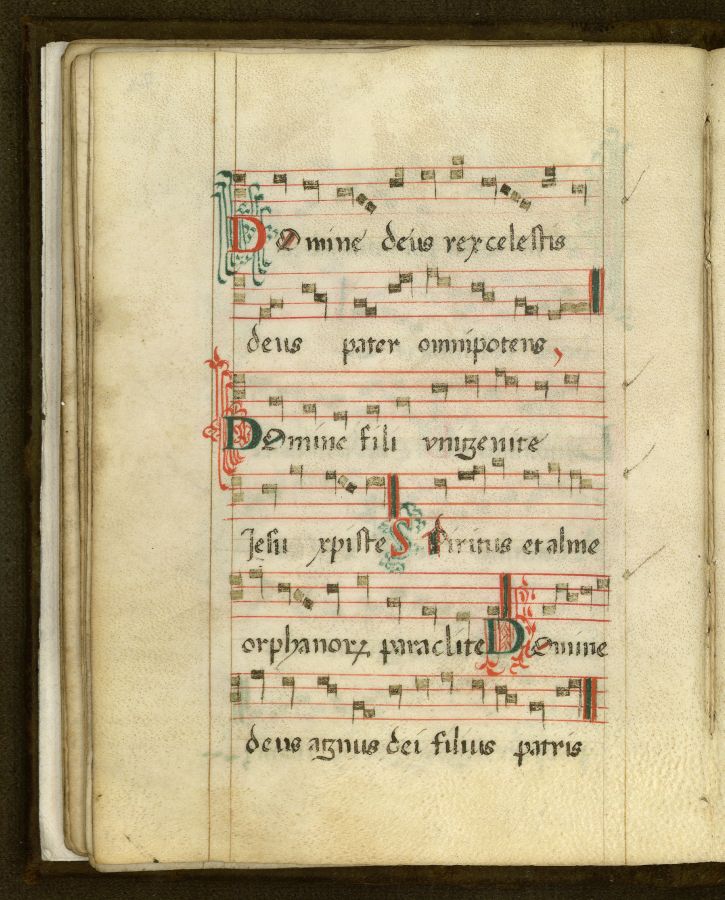 Domine deus rex celestis
deus pater omnipotens,
Domine fili vnigenite
Jesu xpiste Spiritus et alme
orphanorꝝ paraclite Domine
deus agnus dei filius patris